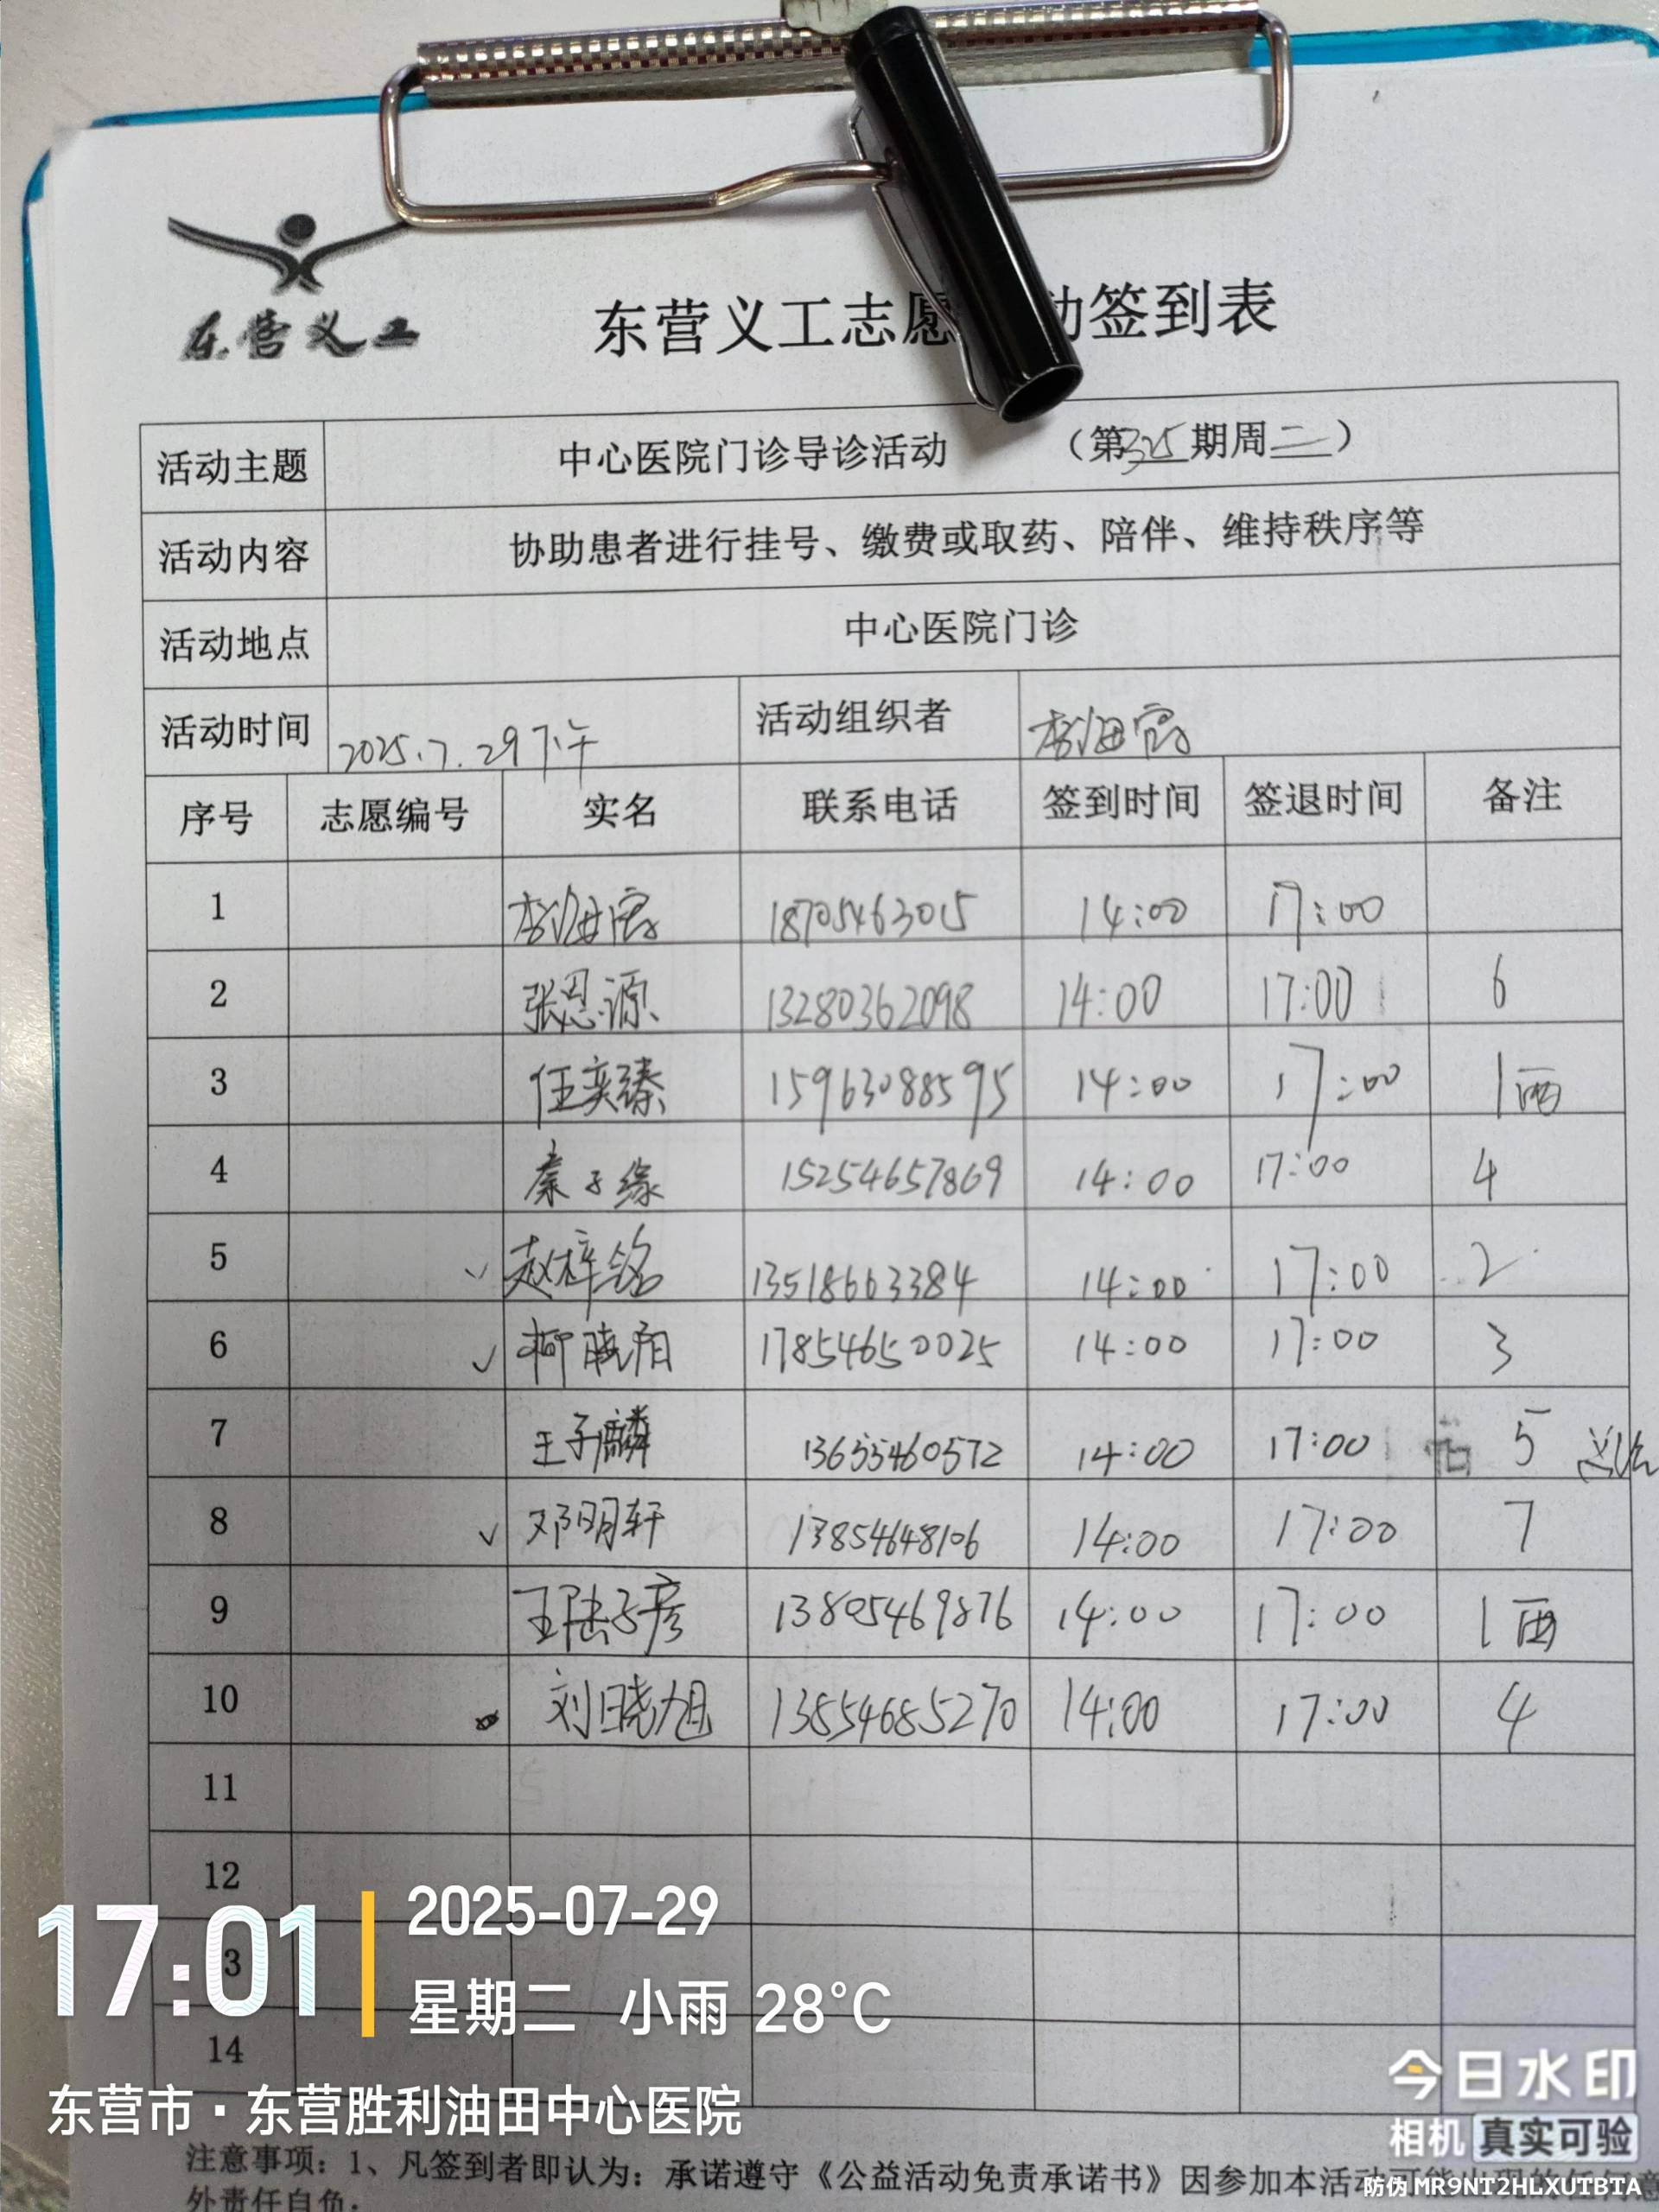 东营义工
东营义工志愿 动签到表
活动主题 中心医院门诊导诊活动 （第325期周二）
活动内容 协助患者进行挂号、缴费或取药、陪伴、维持秩序等
活动地点 中心医院门诊
活动时间 2025.7.29下午 活动组织者 李海霞
序号 志愿编号 实名 联系电话 签到时间 签退时间 备注
1 李海霞 18705463015 14:00 17:00
2 张恩源 13280362098 14:00 17:00 6
3 任奕臻 15963088595 14:00 17:00 1西
4 秦子缘 15254657869 14:00 17:00 4
5 ✓ 赵梓铭 13518663384 14:00 17:00 2
6 ✓ 柳晓阳 17854650025 14:00 17:00 3
7 王子麟 13655460572 14:00 17:00 5
8 ✓ 邓明轩 13854648106 14:00 17:00 7
9 王陆子彦 13805469876 14:00 17:00 1西
10 刘晓旭 13854685270 14:00 17:00 4
11
12
3
14
17:01
2025-07-29
星期二 小雨 28°C
东营市·东营胜利油田中心医院
今日水印
相机 真实可验
注意事项：1、凡签到者即认为：承诺遵守《公益活动免责承诺书》因参加本活动
外责任自负；
防伪 MR9NT2HLXUTBTA